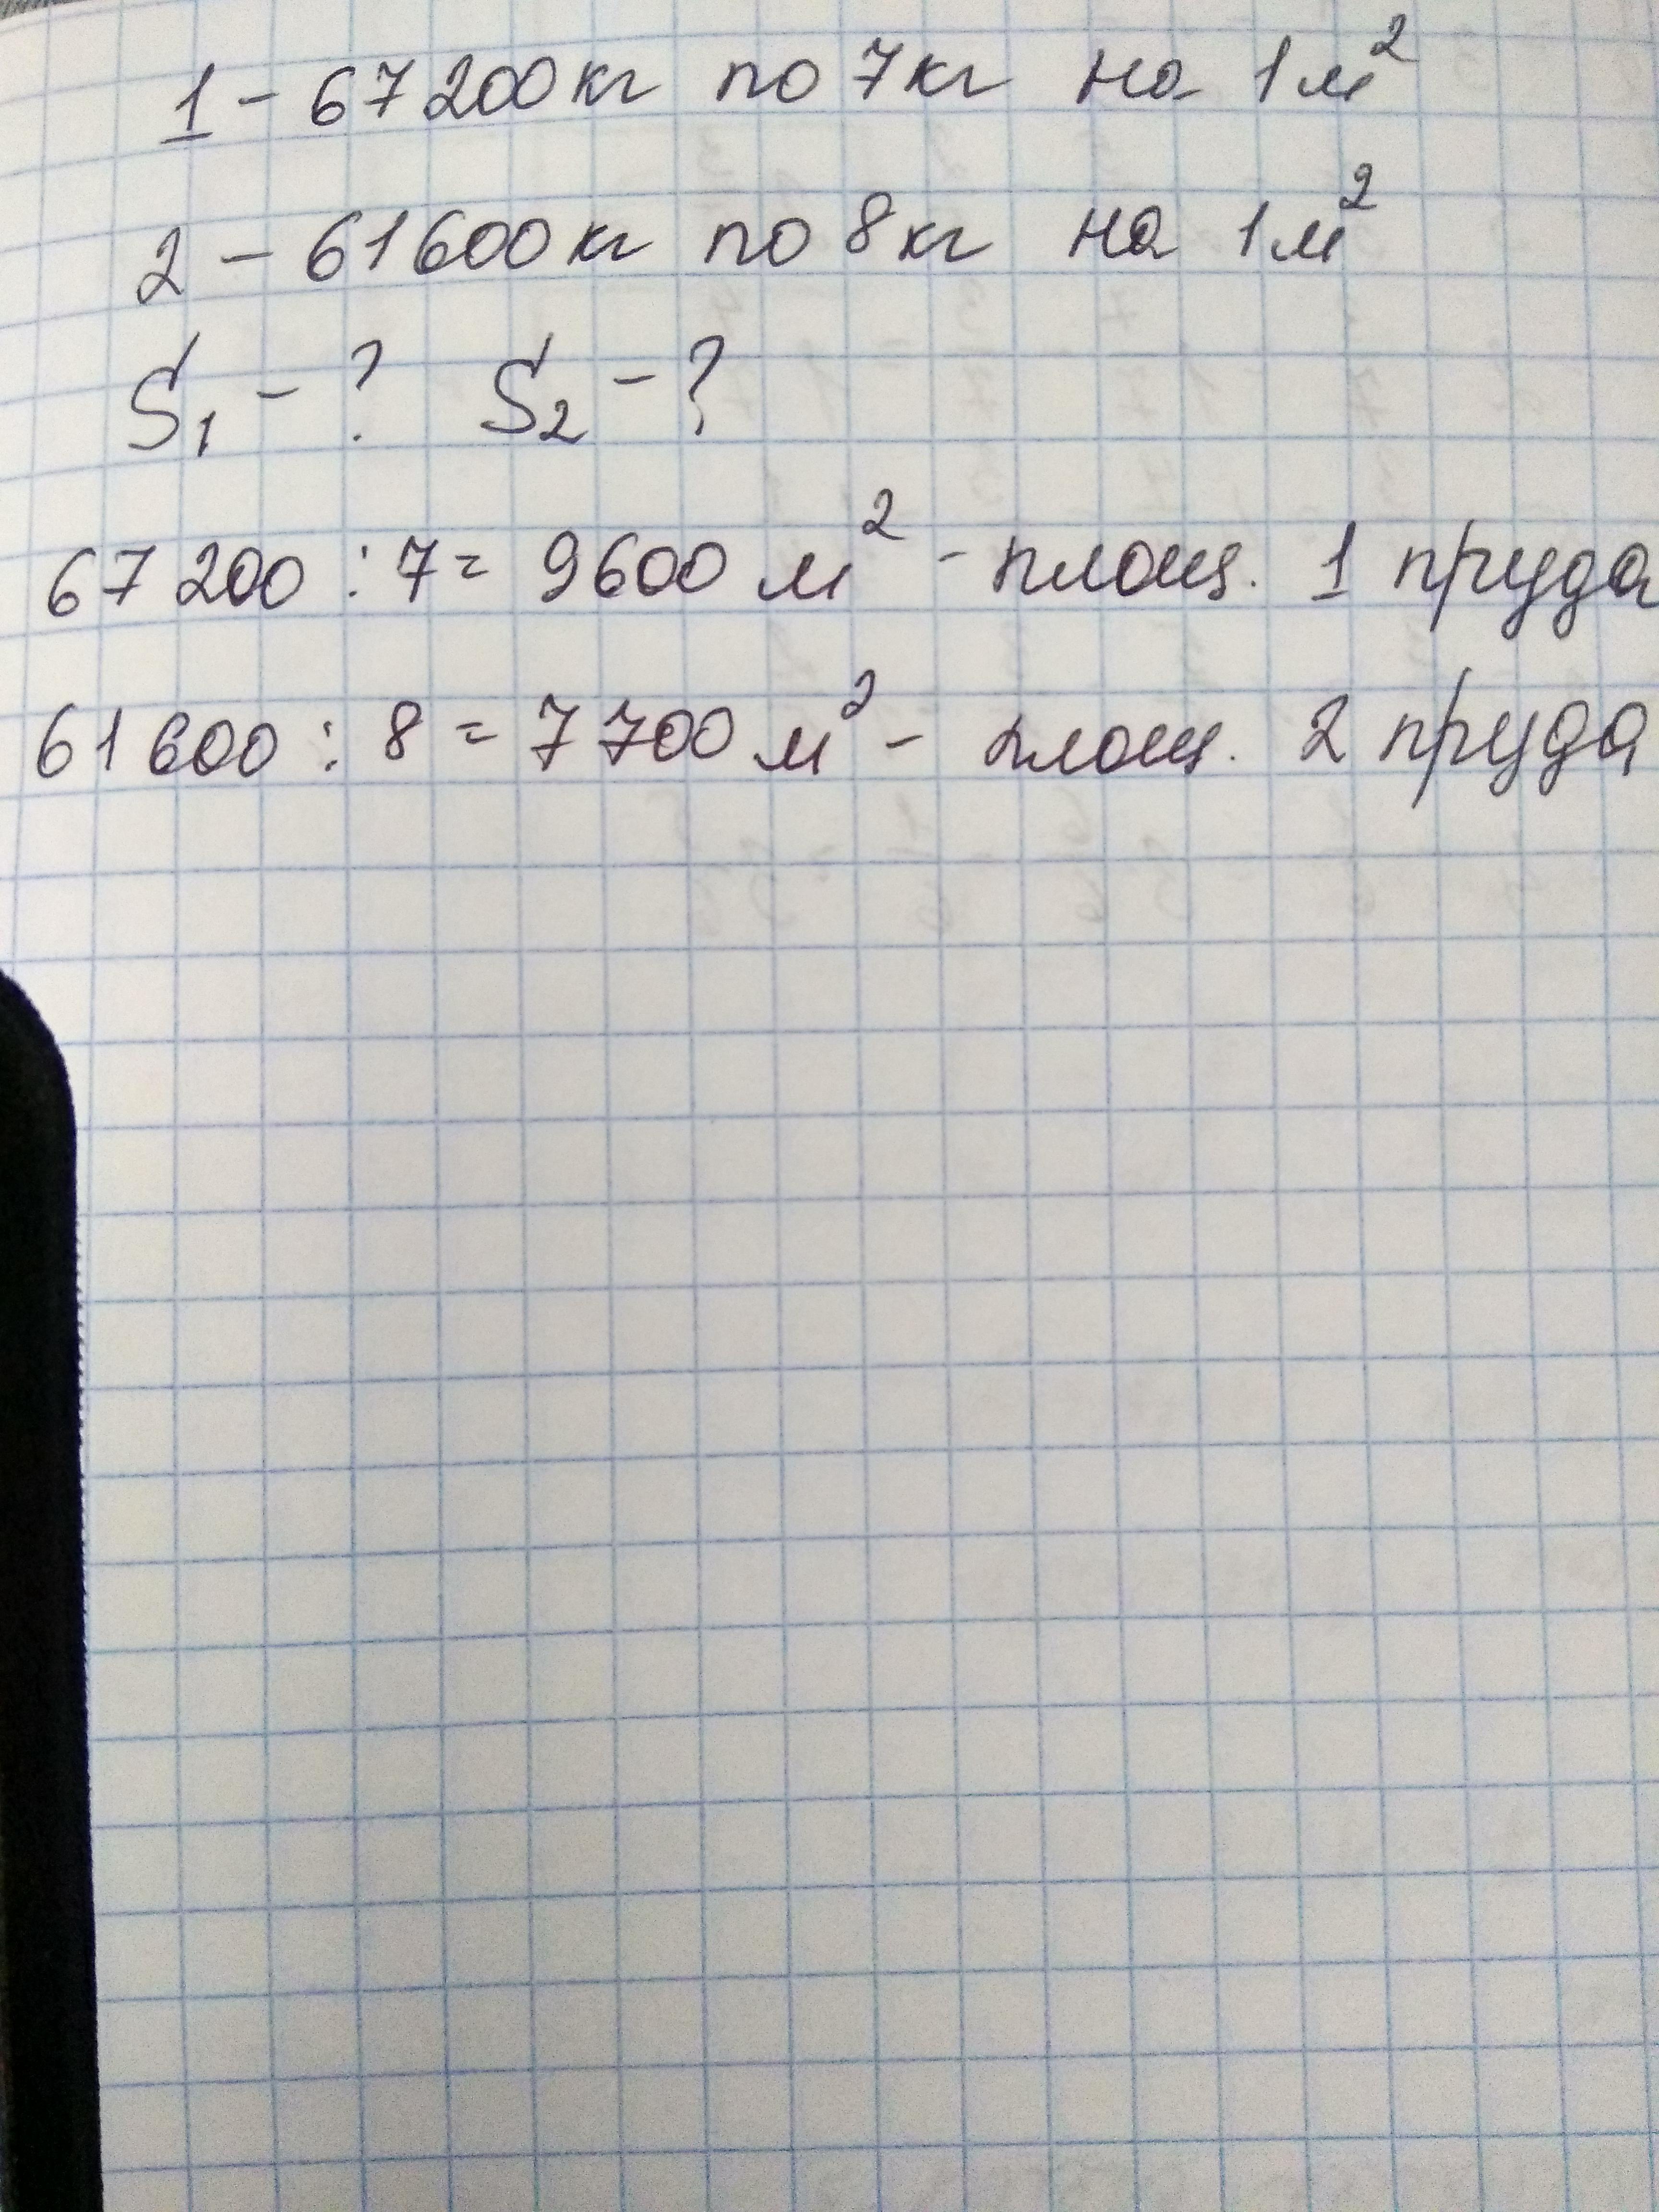 1 - 67 200 кг по 7 кг на 1 м²
2 - 61 600 кг по 8 кг на 1 м²
S₁ - ? S₂ - ?
67 200 : 7 = 9600 м² - площ. 1 пруда
61 600 : 8 = 7 700 м² - площ. 2 пруда